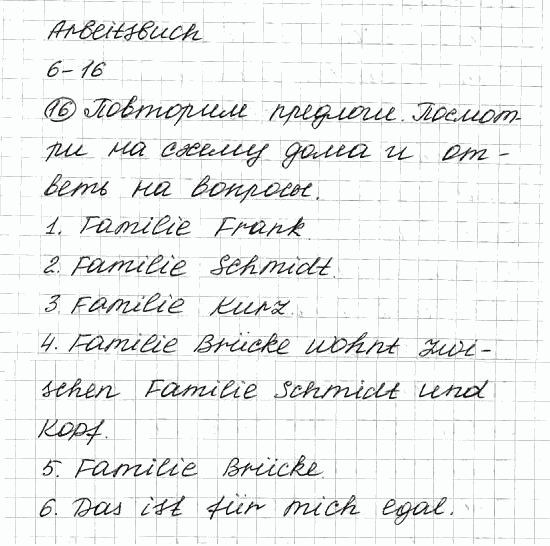 Arbeitsbuch
6-16
16 Повторим предлоги. Посмот-
ри на схему дома и от-
веть на вопросы.
1. Familie Frank.
2. Familie Schmidt.
3. Familie Kurz.
4. Familie Brücke wohnt zwi-
schen Familie Schmidt und
Kopf.
5. Familie Brücke.
6. Das ist für mich egal.